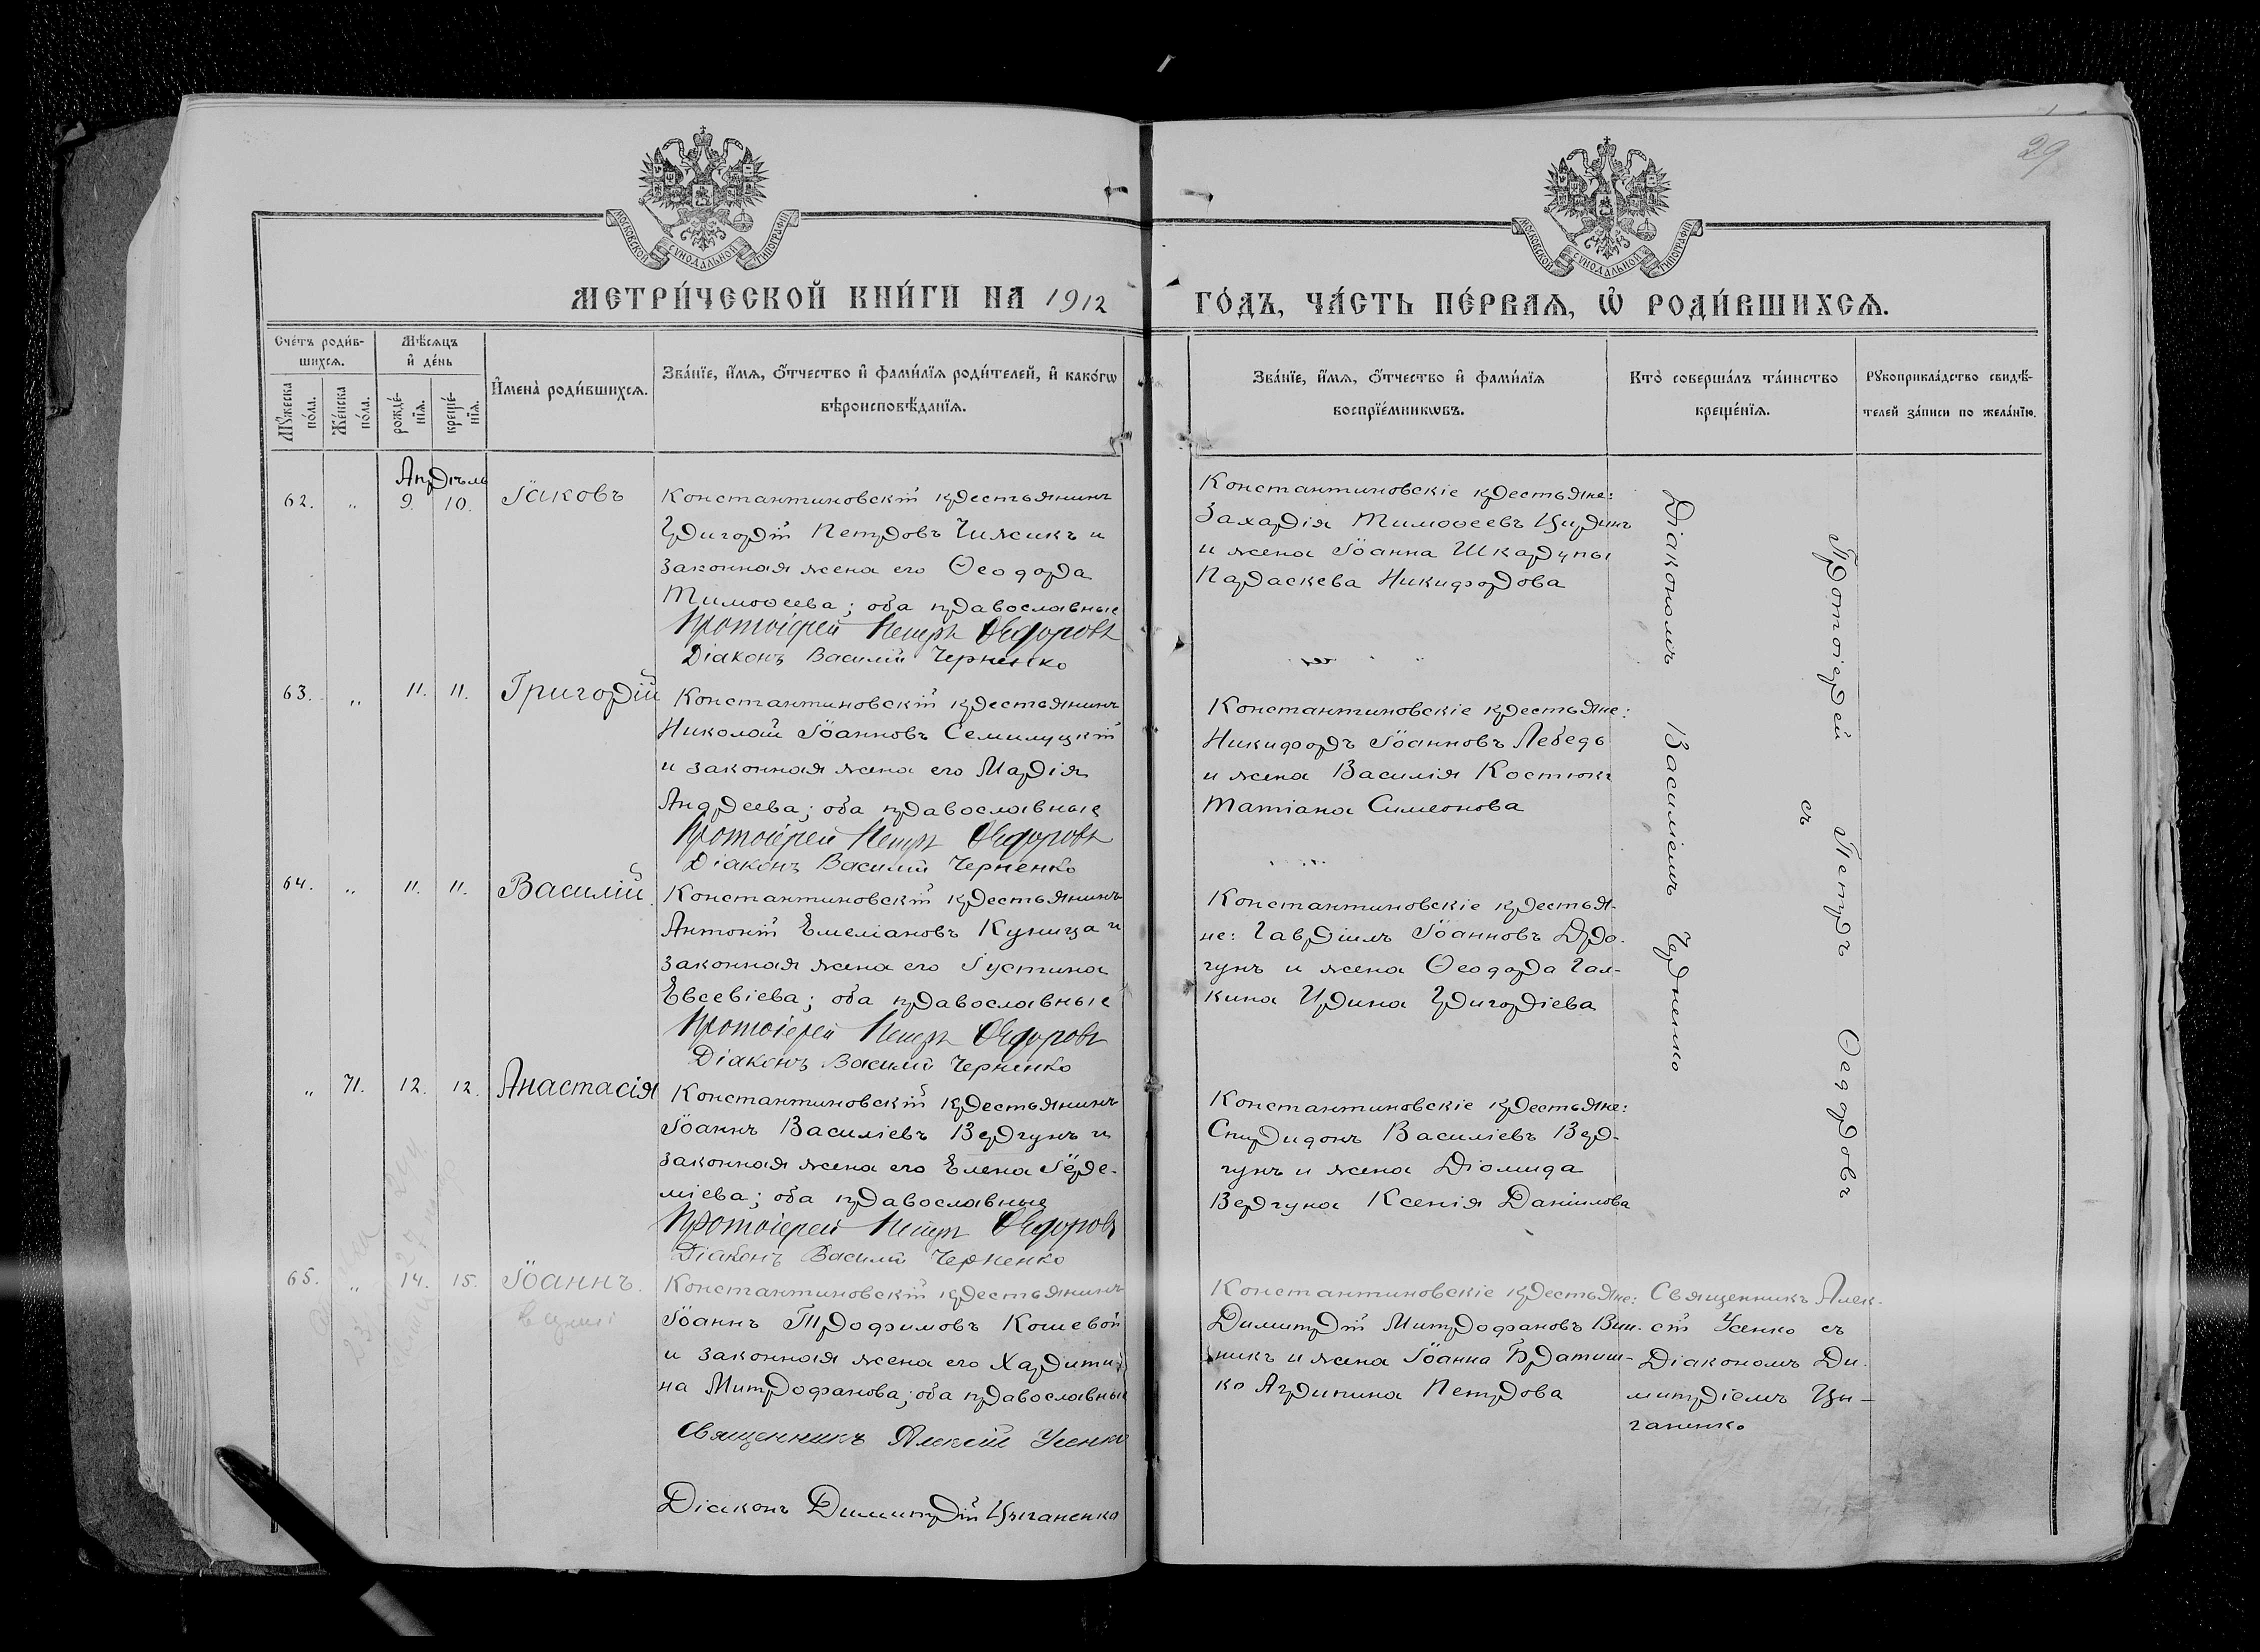 29
МОСКОВСКОЙ СѴНОДАЛЬНОЙ ТИПОГРАФІИ
МОСКОВСКОЙ СѴНОДАЛЬНОЙ ТИПОГРАФІИ
МЕТРИ́ЧЕСКОЙ КНИ́ГИ НА 1912 ГО́ДЪ, ЧА́СТЬ ПЕ́РВАѦ, Ѡ҆ РОДИ́ВШИХСѦ.
Сче́тъ роди́в-
шихсѧ.
Мꙋ́жеска по́ла.
Же́нска по́ла.
Мѣ́сѧцъ
и҆ де́нь
рожде́-
нїѧ.
креще́-
нїѧ.
И҆мена̀ роди́вшихсѧ.
Зва́нїе, и҆́мѧ, ѻ҆́тчество и҆ фами́лїѧ роди́телей, и҆ како́гѡ
вѣроисповѣ́данїѧ.
Зва́нїе, и҆́мѧ, ѻ҆́тчество и҆ фами́лїѧ
воспрїе́мникѡвъ.
Кто̀ соверша́лъ та́инство
креще́нїѧ.
Рꙋкоприкла́дство свидѣ́-
телей за́писи по жела́нїю.
Апрѣль
62. „ 9. 10. Іаковъ
Константиновскій крестьянинъ
Григорій Петровъ Чижикъ и
законная жена его Ѳеодора
Тимоѳеева; оба православные
Протоіерей Петръ Ѳедоровъ
Діаконъ Василій Черненко
Константиновскіе крестьяне:
Захарія Тимоѳеевъ Циринъ
и жена Іоанна Шкарупы
Параскева Никифорова
63. „ 11. 11. Григорій
Константиновскій крестьянинъ
Николай Іоанновъ Семилуцкій
и законная жена его Марія
Андреева; оба православные
Протоіерей Петръ Ѳедоровъ
Діаконъ Василій Черненко
Константиновскіе крестьяне:
Никифоръ Іоанновъ Лебедь
и жена Василія Костюкъ
Татіана Симеонова
64. „ 11. 11. Василій.
Константиновскій крестьянинъ
Антоній Емеліановъ Куница и
законная жена его Іустина
Евсевіева; оба православные
Протоіерей Петръ Ѳедоровъ
Діаконъ Василій Черненко
Константиновскіе крестья-
не: Гавріилъ Іоанновъ Дра-
гунъ и жена Ѳеодора Гал-
кина Ирина Григоріева
„ 71. 12. 12. Анастасія
Константиновскій крестьянинъ
Іоаннъ Василіевъ Вергунъ и
законная жена его Елена Іере-
міева; оба православные
Протоіерей Петръ Ѳедоровъ
Діаконъ Василій Черненко
Константиновскіе крестьяне:
Спиридонъ Василіевъ Вер-
гунъ и жена Діомида
Вергуна Ксенія Даніилова
Протоіерей Петръ Ѳедоровъ
съ
Діакономъ Василіемъ Черненко
65. „ 14. 15. Іоаннъ.
Константиновскій крестьянинъ
Іоаннъ Трофимовъ Кошевой
и законная жена его Харити-
на Митрофанова; оба православные
Священникъ Алексій Усенко
Діаконъ Димитрій Цыганенко
Константиновскіе крестьяне:
Димитрій Митрофановъ Вин-
никъ и жена Іоанна Братиш-
ко Агрипина Петрова
Священникъ Алек-
сій Усенко съ
Діакономъ Ди-
митріемъ Цы-
ганенко